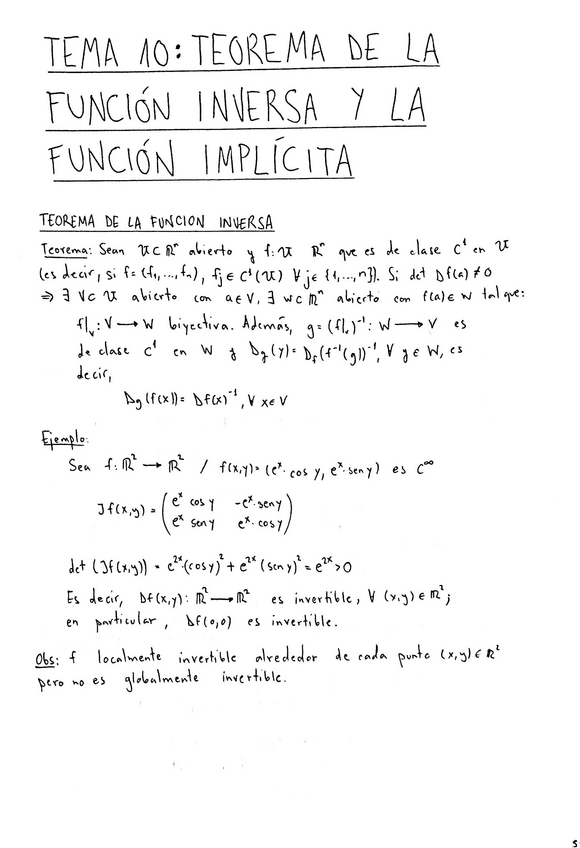 TEMA 10: TEOREMA DE LA
FUNCIÓN INVERSA Y LA
FUNCIÓN IMPLÍCITA
TEOREMA DE LA FUNCION INVERSA
Teorema: Sean U ⊂ ℝⁿ abierto y f: U ℝⁿ que es de clase C¹ en U
(es decir, si f = (f₁,...,fₙ), fⱼ ∈ C¹(U) ∀ j ∈ {1,...,n}). Si det Df(a) ≠ 0
⇒ ∃ V ⊂ U abierto con a ∈ V, ∃ W ⊂ ℝⁿ abierto con f(a) ∈ W tal que:
f|ᵥ: V → W biyectiva. Además, g = (f|ᵥ)⁻¹: W → V es
de clase C¹ en W y Dg(y) = Df(f⁻¹(y))⁻¹, ∀ y ∈ W, es
decir,
Dg(f(x)) = Df(x)⁻¹, ∀ x ∈ V
Ejemplo:
Sea f: ℝ² → ℝ² / f(x,y) = (eˣ· cos y, eˣ· sen y) es C^∞
Jf(x,y) = ( eˣ cos y -eˣ· sen y
eˣ sen y eˣ· cos y )
det (Jf(x,y)) = e²ˣ·(cos y)² + e²ˣ (sen y)² = e²ˣ > 0
Es decir, Df(x,y): ℝ² → ℝ² es invertible, ∀ (x,y) ∈ ℝ²;
en particular, Df(0,0) es invertible.
Obs: f localmente invertible alrededor de cada punto (x,y) ∈ ℝ²
pero no es globalmente invertible.
5